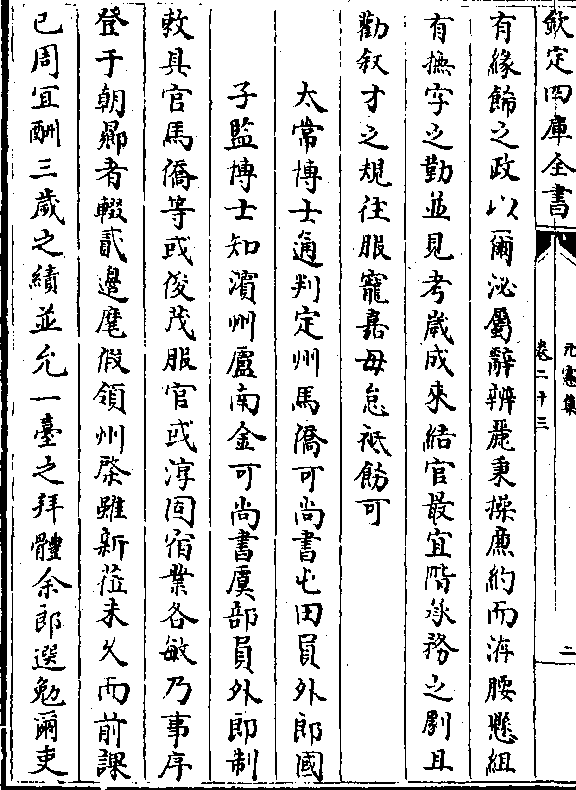 欽定四庫全書
元憲集
卷二十三
二
有緣飾之政以爾泌屬辭辨麗秉操廉約而洊腰懸組
有撫字之勤並見考歲成來結官最宜階承務之劇且
勸叙才之規往服寵嘉毋怠祗飭可
太常博士通判定州馬僑可尚書屯田員外郎國
子監博士知濵州盧南金可尚書虞部員外郎制
敕具官馬僑等或俊茂服官或淳固宿業各敏乃事序
登于朝鄊者輟貳邊麾假領州棨雖新莅未久而前課
已周宜酬三歲之績並允一臺之拜體余郎選勉爾吏